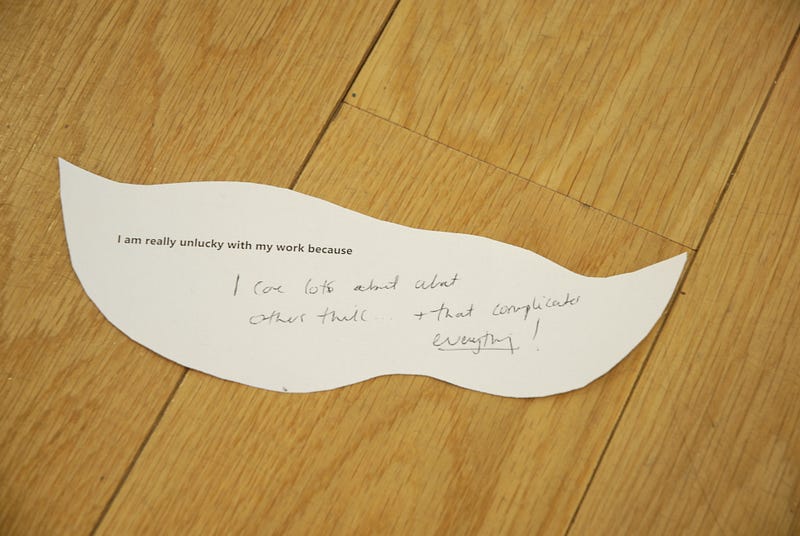 I am really unlucky with my work because
I care lots about about
other ... + that complicates
everything!